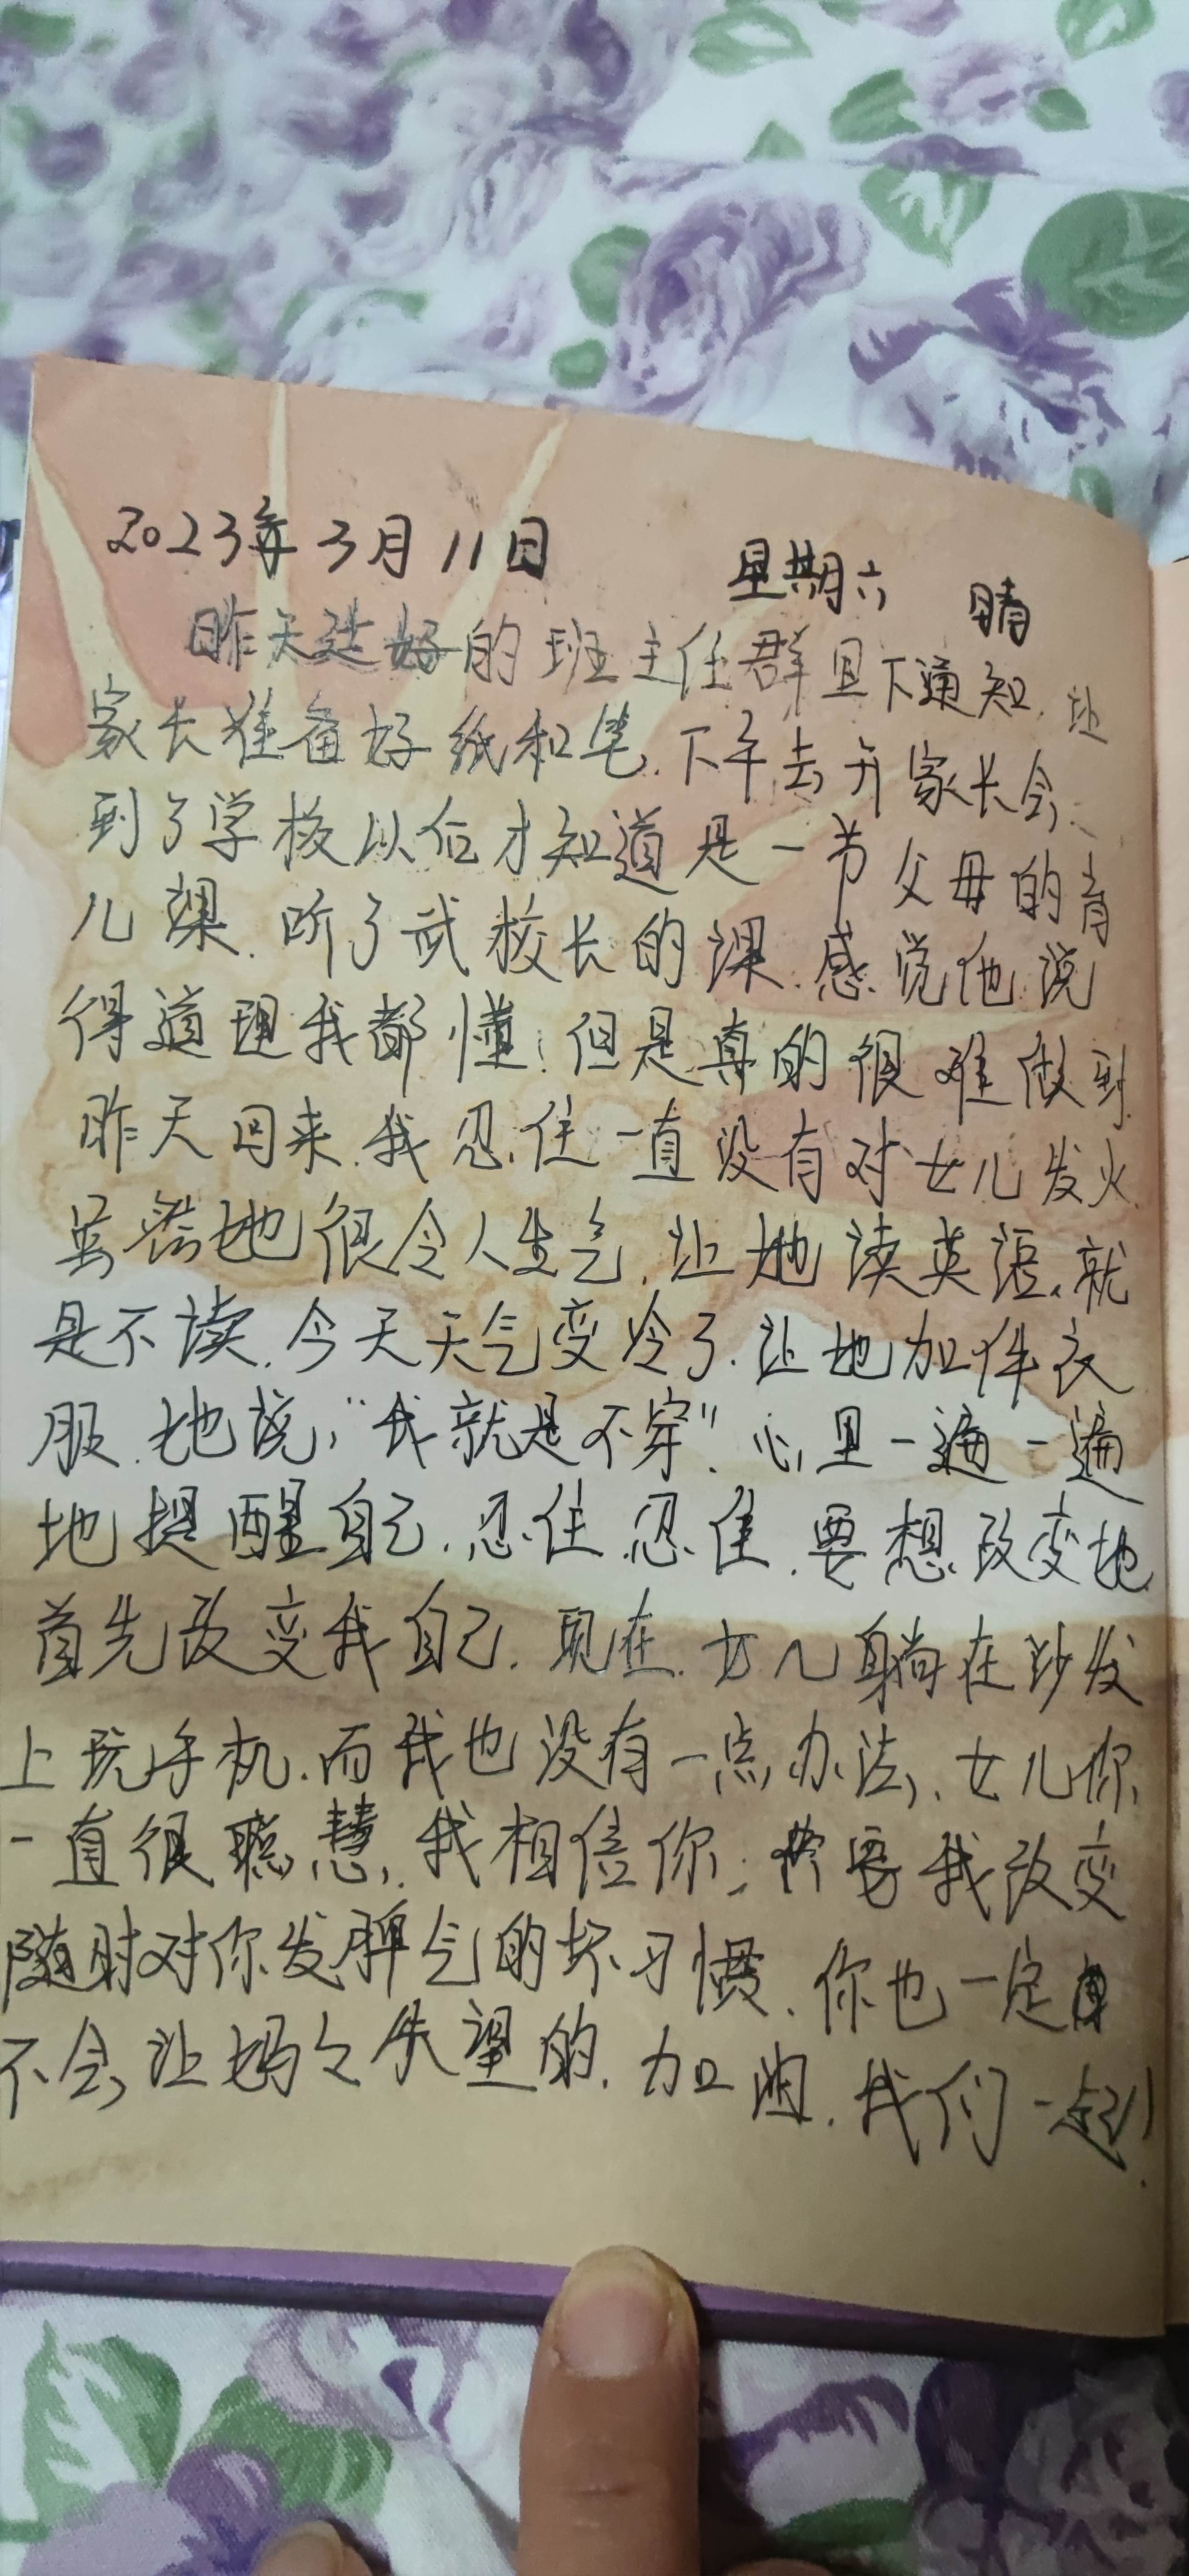 2023年3月11日 星期六 晴
昨天 好的班主任群里下通知,让
家长准备好纸和笔.下午去开家长会.
到了学校以后才知道是一节父母的育
儿课.听了武校长的课.感觉他说
得道理我都懂!但是真的很难做到.
昨天回来.我忍住一直没有对女儿发火.
虽然她很令人生气.让她读英语.就
是不读.今天天气变冷了.让她加件衣
服.她说:“我就是不穿”.心里一遍一遍
地提醒自己.忍住.忍住.要想改变她
首先改变我自己.现在.女儿躺在沙发
上玩手机.而我也没有一点办法.女儿你
一直很聪慧.我相信你. 要我改变
随时对你发脾气的坏习惯.你也一定
不会让妈々失望的.加油.我们一起!